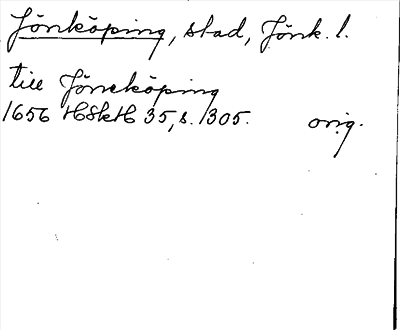 Jönköping, stad, Jönk. l.
till Jöneköping
1656 HSkH 35, s. 1305. orig.